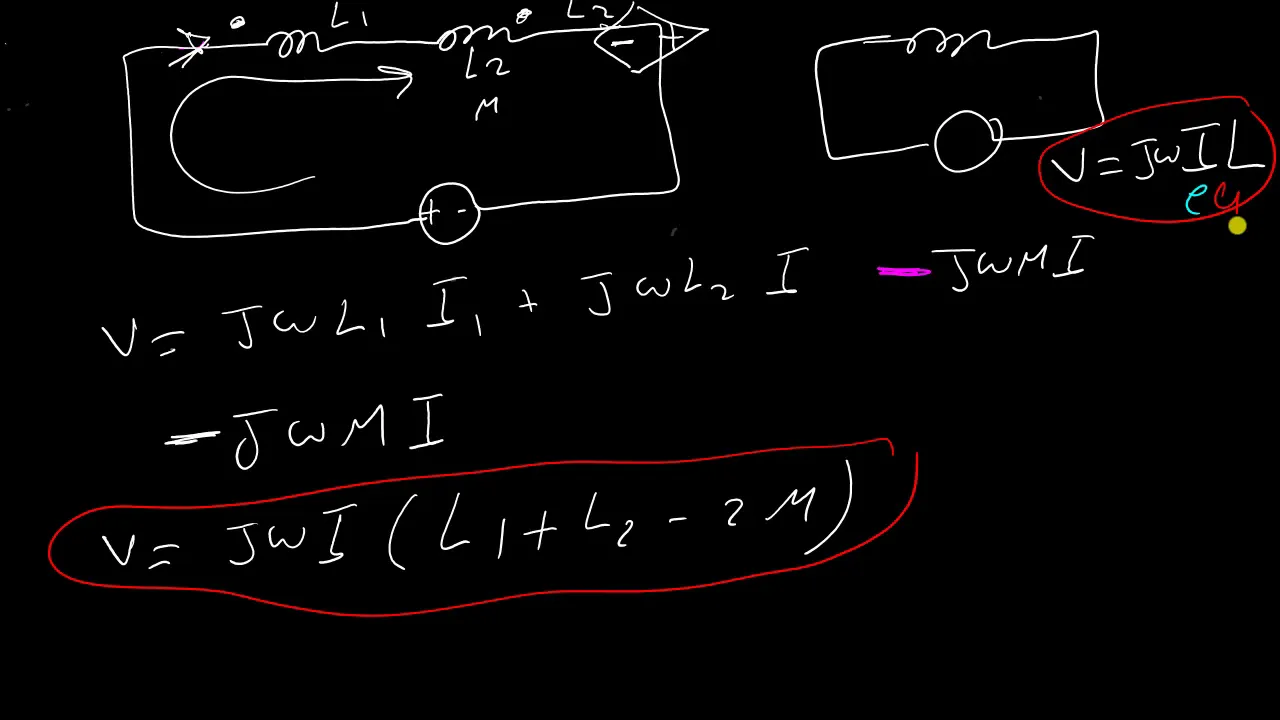 L1 L2
L2
M
- +
+ -
V = JωIL
eq
V = JωL1 I1 + JωL2 I - JωMI
- JωMI
V = JωI (L1 + L2 - 2M)